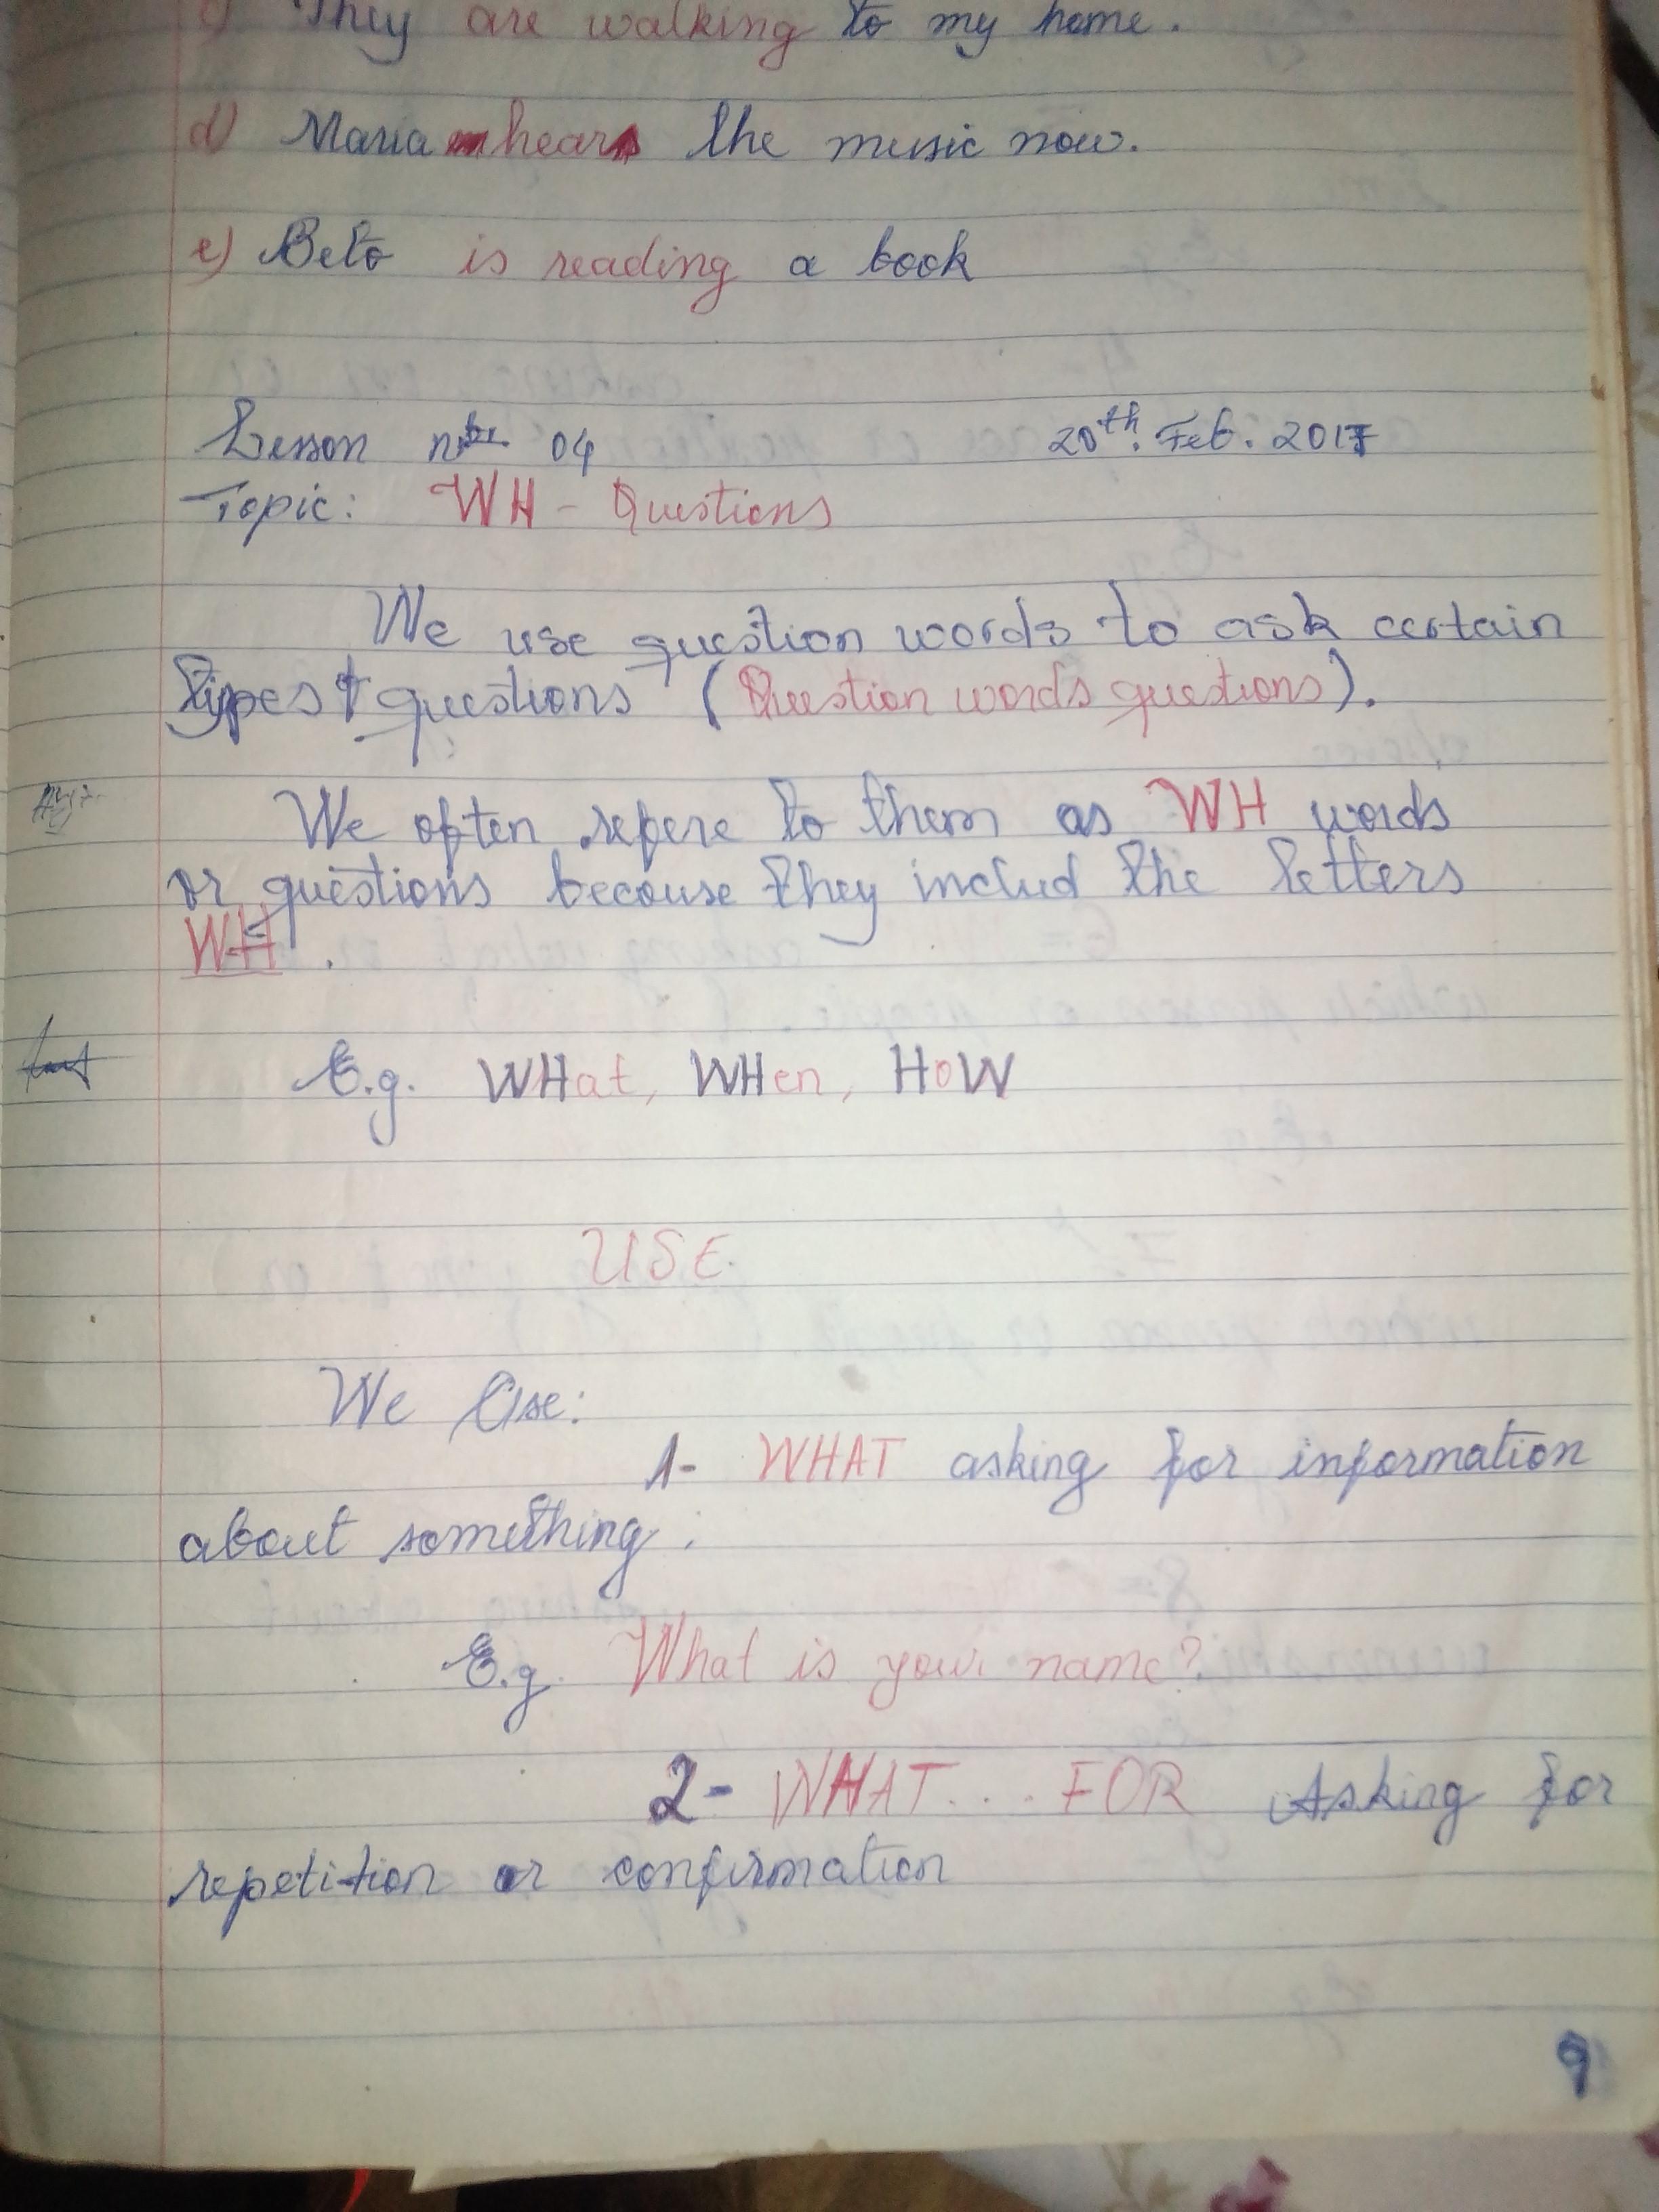 c) They are walking to my home.
d) Maria hears the music now.
e) Beto is reading a book
Lesson nbr 04 20th. Feb. 2017
Topic: WH - Questions
We use question words to ask certain
types of questions (Question words questions).
We often refere to them as WH words
or questions because they includ the letters
WH.
E.g. WHat, WHen, HoW
USE.
We Use:
1- WHAT asking for information
about something.
E.g. What is your name?
2- WHAT... FOR Asking for
repetition or confirmation
9